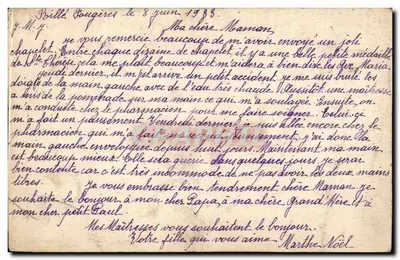 Billé Fougères le 8 juin 1938.
J.M.J. Ma chère Maman,
je vous remercie beaucoup de m'avoir envoyé un joli
chapelet. Entre chaque dizaine de chapelet il y a une belle petite médaille
de Ste Thérèse, cela me plaît beaucoup et m'aidera à bien dire les Ave Maria.
jeudi dernier, il m'est arrivé un petit accident. Je me suis brûlé les
doigts de la main gauche avec de l'eau très chaude. Aussitôt une maîtresse
a mis de la pommade sur ma main ce qui m'a soulagée. Ensuite, on
m'a conduite chez le pharmacien pour me faire soigner. Celui-ci
m'a fait un pansement. Vendredi dernier je suis allée encore chez le
pharmacien qui m'a fait un autre pansement, j'ai donc la
main gauche enveloppée depuis huit jours. Maintenant ma main
est beaucoup mieux. Elle sera guérie dans quelques jours, je serai
bien contente car c'est très incommode de ne pas avoir les deux mains
libres.
Je vous embrasse bien tendrement chère Maman. Je
souhaite le bonjour à mon cher Papa, à ma chère Grand'Mère et à
mon cher petit Paul.
Mes Maîtresses vous souhaitent le bonjour.
Votre fille qui vous aime Marthe Noël